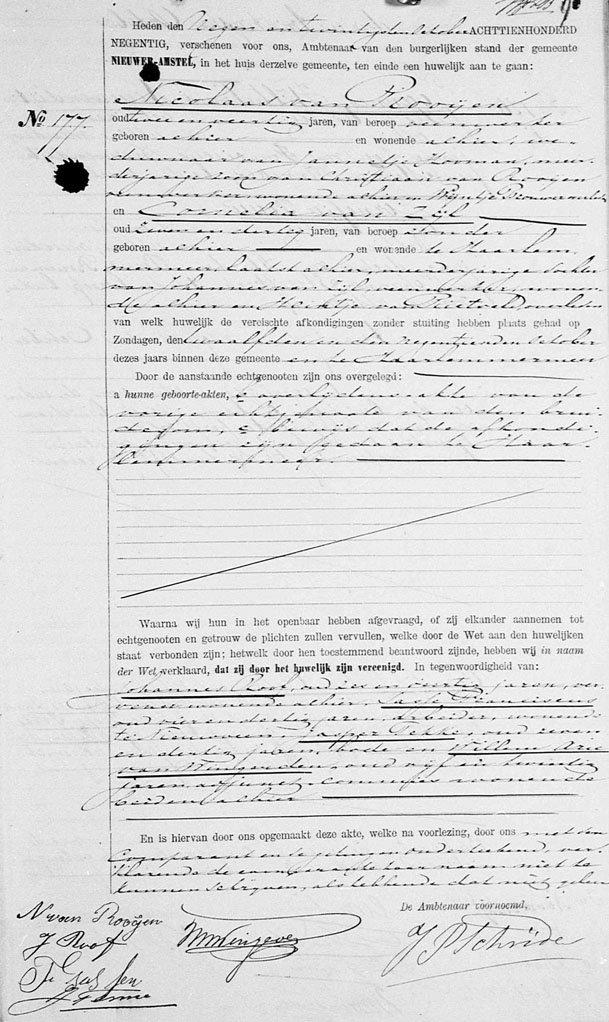 Heden den Negen en twintigsten October ACHTTIENHONDERD
NEGENTIG, verschenen voor ons, Ambtenaar van den burgerlijken stand der gemeente
NIEUWER-AMSTEL, in het huis derzelve gemeente, ten einde een huwelijk aan te gaan:
Nicolaas van Rooijen
No 177.
oud twee en veertig jaren, van beroep veenwerker
geboren alhier en wonende alhier, we-
duwnaar van Jannetje Kooman, meer-
derjarige zoon van Christiaan van Rooijen
veenwerker wonende alhier en Wijntje Brouwer
en Cornelia van Zijl
oud Zeven en dertig jaren, van beroep zonder
geboren alhier en wonende te Haarlem-
mermeer, laatst alhier, meerderjarige dochter
van Johannes van Zijl, veenwerker, wonen-
de alhier en van overleden
van welk huwelijk de vereischte afkondigingen zonder stuiting hebben plaats gehad op
Zondagen, den twaalfden en den Negentienden October
dezes jaars binnen deze gemeente en te Haarlemmermeer
Door de aanstaande echtgenooten zijn ons overgelegd:
a hunne geboorte-akten, overlijdens-akte van de
vorige echtgenoote van den brui-
degom, bewijs dat de afkondi-
gingen zijn gedaan te Haar-
lemmermeer.
Waarna wij hun in het openbaar hebben afgevraagd, of zij elkander aannemen tot
echtgenooten en getrouw de plichten zullen vervullen, welke door de Wet aan den huwelijken
staat verbonden zijn; hetwelk door hen toestemmend beantwoord zijnde, hebben wij in naam
der Wet, verklaard, dat zij door het huwelijk zijn vereenigd. In tegenwoordigheid van:
Johannes Roof, oud zes en veertig jaren, ver-
wonende alhier,
oud vier en dertig jaren, arbeider, wonende
te Jasper Fekkes, oud zeven
en dertig jaren, bode en Willem Arie
van Wingerden, oud vijf en twintig
jaren, adjunct-commies wonende
beiden alhier
En is hiervan door ons opgemaakt deze akte, welke na voorlezing, door ons met den
Comparant en de getuigen onderteekend, ver-
klarende de comparante haar naam niet te
kunnen schrijven, als hebbende dat niet geleerd
De Ambtenaar voornoemd,
N van Rooijen
J Roof